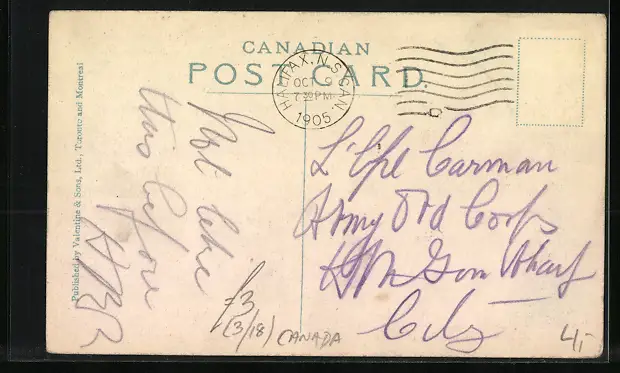 CANADIAN
POST CARD.
HALIFAX, N.S. CAN.
OCT 9
7 30 PM
1905
Published by Valentine & Sons, Ltd., Toronto and Montreal
Not like
this before
L'Cpl Carman
Army Ord Corps
Gun Wharf
City
(3/18) CANADA
4,-